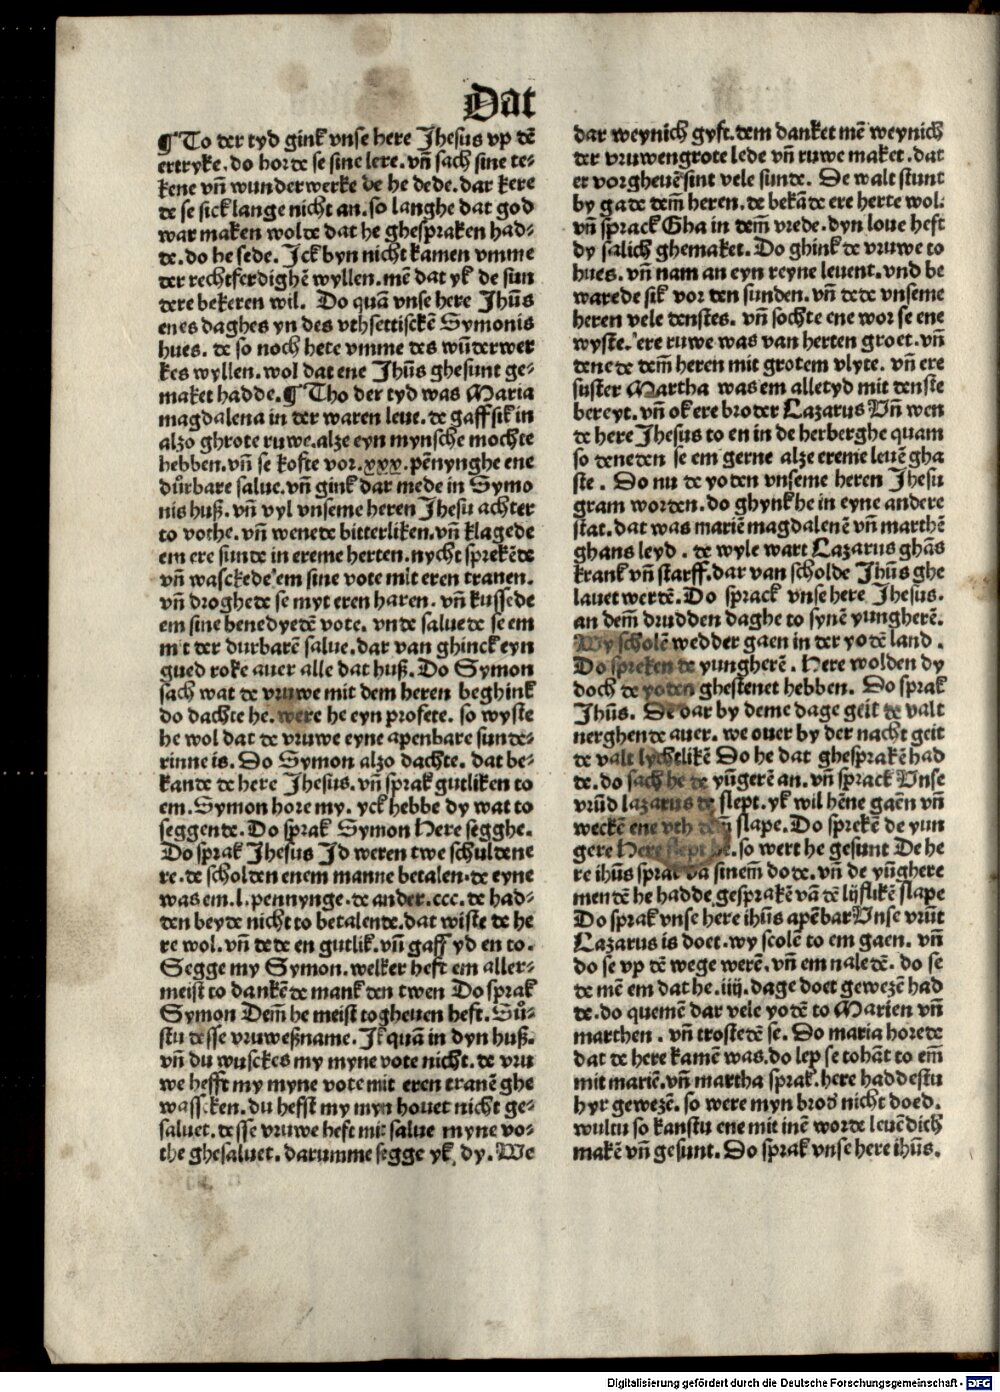 Dat
¶ To der tyd gink vnse here Jhesus vp dē
ertryke. do horde se sine lere. vn̄ sach sine te⸗
kene vn̄ wunderwerke de he dede. dar kere
de se sick lange nicht an. so langhe dat god
war maken wolde dat he ghespraken had⸗
de. do he sede. Ick byn nicht kamen vmme
der rechtferdighē wyllen. mē dat yk de sun
dere bekeren wil. Do quā vnse here Jhūs
enes daghes yn des vthsettisckē Symonis
hues. de so noch hete vmme des wūderwer
kes wyllen. wol dat ene Jhūs ghesunt ge⸗
maket hadde. ¶ Tho der tyd was Maria
magdalena in der waren leue. de gaff sik in
alzo ghrote ruwe. alze eyn mynsche mochte
hebben. vn̄ se kofte vor .xxx. pēnynghe ene
důrbare salue. vn̄ gink dar mede in Symo
nis huß. vn̄ vyl vnseme heren Jhesu achter
to vothe. vn̄ wenede bitterliken. vn̄ klagede
em ere sunde in ereme herten. nycht sprekēde
vn̄ wasckede em sine vote mit eren tranen.
vn̄ droghede se myt eren haren. vn̄ kussede
em sine benedyedē vote. vnde saluede se em
mit der durbarē salue. dar van ghinck eyn
gued roke auer alle dat huß. Do Symon
sach wat de vruwe mit dem heren beghink
do dachte he. were he eyn profete. so wyste
he wol dat de vruwe eyne apenbare sunde⸗
rinne is. Do Symon alzo dachte. dat be⸗
kande de here Jhesus. vn̄ sprak gutliken to
em. Symon hore my. yck hebbe dy wat to
seggende. Do sprak Symon Here segghe.
Do sprak Jhesus Id weren twe schuldene
re. de scholden enem manne betalen. de eyne
was em .l. pennynge. de ander .ccc. de had⸗
den beyde nicht to betalende. dat wiste de he
re wol. vn̄ dede en gutlik. vn̄ gaff yd en to.
Segge my Symon. welker heft em aller⸗
meist to dankēde mank den twen Do sprak
Symon Dem̄ he meist togheuen heft. Sů⸗
stu desse vruweßname. Ik quā in dyn huß.
vn̄ du wusckes my myne vote nicht. de vru
we hefft my myne vote mit eren tranē ghe
wasscken. du hefst my myn houet nicht ge⸗
saluet. desse vruwe heft mit salue myne vo⸗
the ghesaluet. darumme segge yk dy. We
dar weynich gyft. dem danket mē weynich
der vruwen grote lede vn̄ ruwe maket. dat
er vorgheuē sint vele sunde. De walt stunt
by gade dem̄ heren. de bekāde ere herte wol.
vn̄ sprack Gha in dem̄ vrede. dyn loue heft
dy salich ghemaket. Do ghink de vruwe to
hues. vn̄ nam an eyn reyne leuent. vnd be
warede sik vor den sunden. vn̄ dede vnseme
heren vele denstes. vn̄ sochte ene wor se ene
wyste. ere ruwe was van herten groet. vn̄
denede dem̄ heren mit grotem vlyte. vn̄ ere
suster Martha was em alletyd mit denste
bereyt. vn̄ ok ere broder Lazarus Vn̄ wen
de here Jhesus to en in de herberghe quam
so deneden se em gerne alze ereme leuē gha
ste. Do nu de yoden vnseme heren Jhesu
gram worden. do ghynk he in eyne andere
stat. dat was mariē magdalenē vn̄ marthē
ghans leyd. de wyle wart Lazarus ghās
krank vn̄ starff. dar van scholde Jhūs ghe
lauet werdē. Do sprack vnse here Jhesus.
an dem̄ drudden daghe to synē yungherē.
Wy scholē wedder gaen in der yodē land.
Do spreken de yungherē. Here wolden dy
doch de yoden ghestenet hebben. Do sprak
Jhūs. De dar by deme dage geit de valt
nerghende auer. we ouer by der nacht geit
de valt lychtlikē Do he dat ghesprakē had
de. do sach he de yūgerē an. vn̄ sprack Vnse
vrūd lazarus de slept. yk wil hēne gaēn vn̄
weckē ene vth dem̄ slape. Do sprekē de yun
gere Here slept he. so wert he gesunt De he
re ihūs sprak vā sinem̄ dode. vn̄ de yūghere
mendē he hadde gesprakē vā dē lijflikē slape
Do sprak vnse here ihūs apēbar Vnse vrūt
Lazarus is doet. wy scolē to em gaen. vn̄
do se vp dē wege werē. vn̄ em naledē. do se
de mē em dat he .iiij. dage doet gewezē had
de. do quemē dar vele yodē to Marien vn̄
marthen. vn̄ trostedē se. Do maria horede
dat de here kamē was. do lep se tohāt to em̄
mit mariē. vn̄ martha sprak. here haddestu
hyr gewezē. so were myn brod nicht doed.
wultu so kanstu ene mit inē worde leuēdich
makē vn̄ gesunt. Do sprak vnse here ihūs.
Digitalisierung gefördert durch die Deutsche Forschungsgemeinschaft - DFG